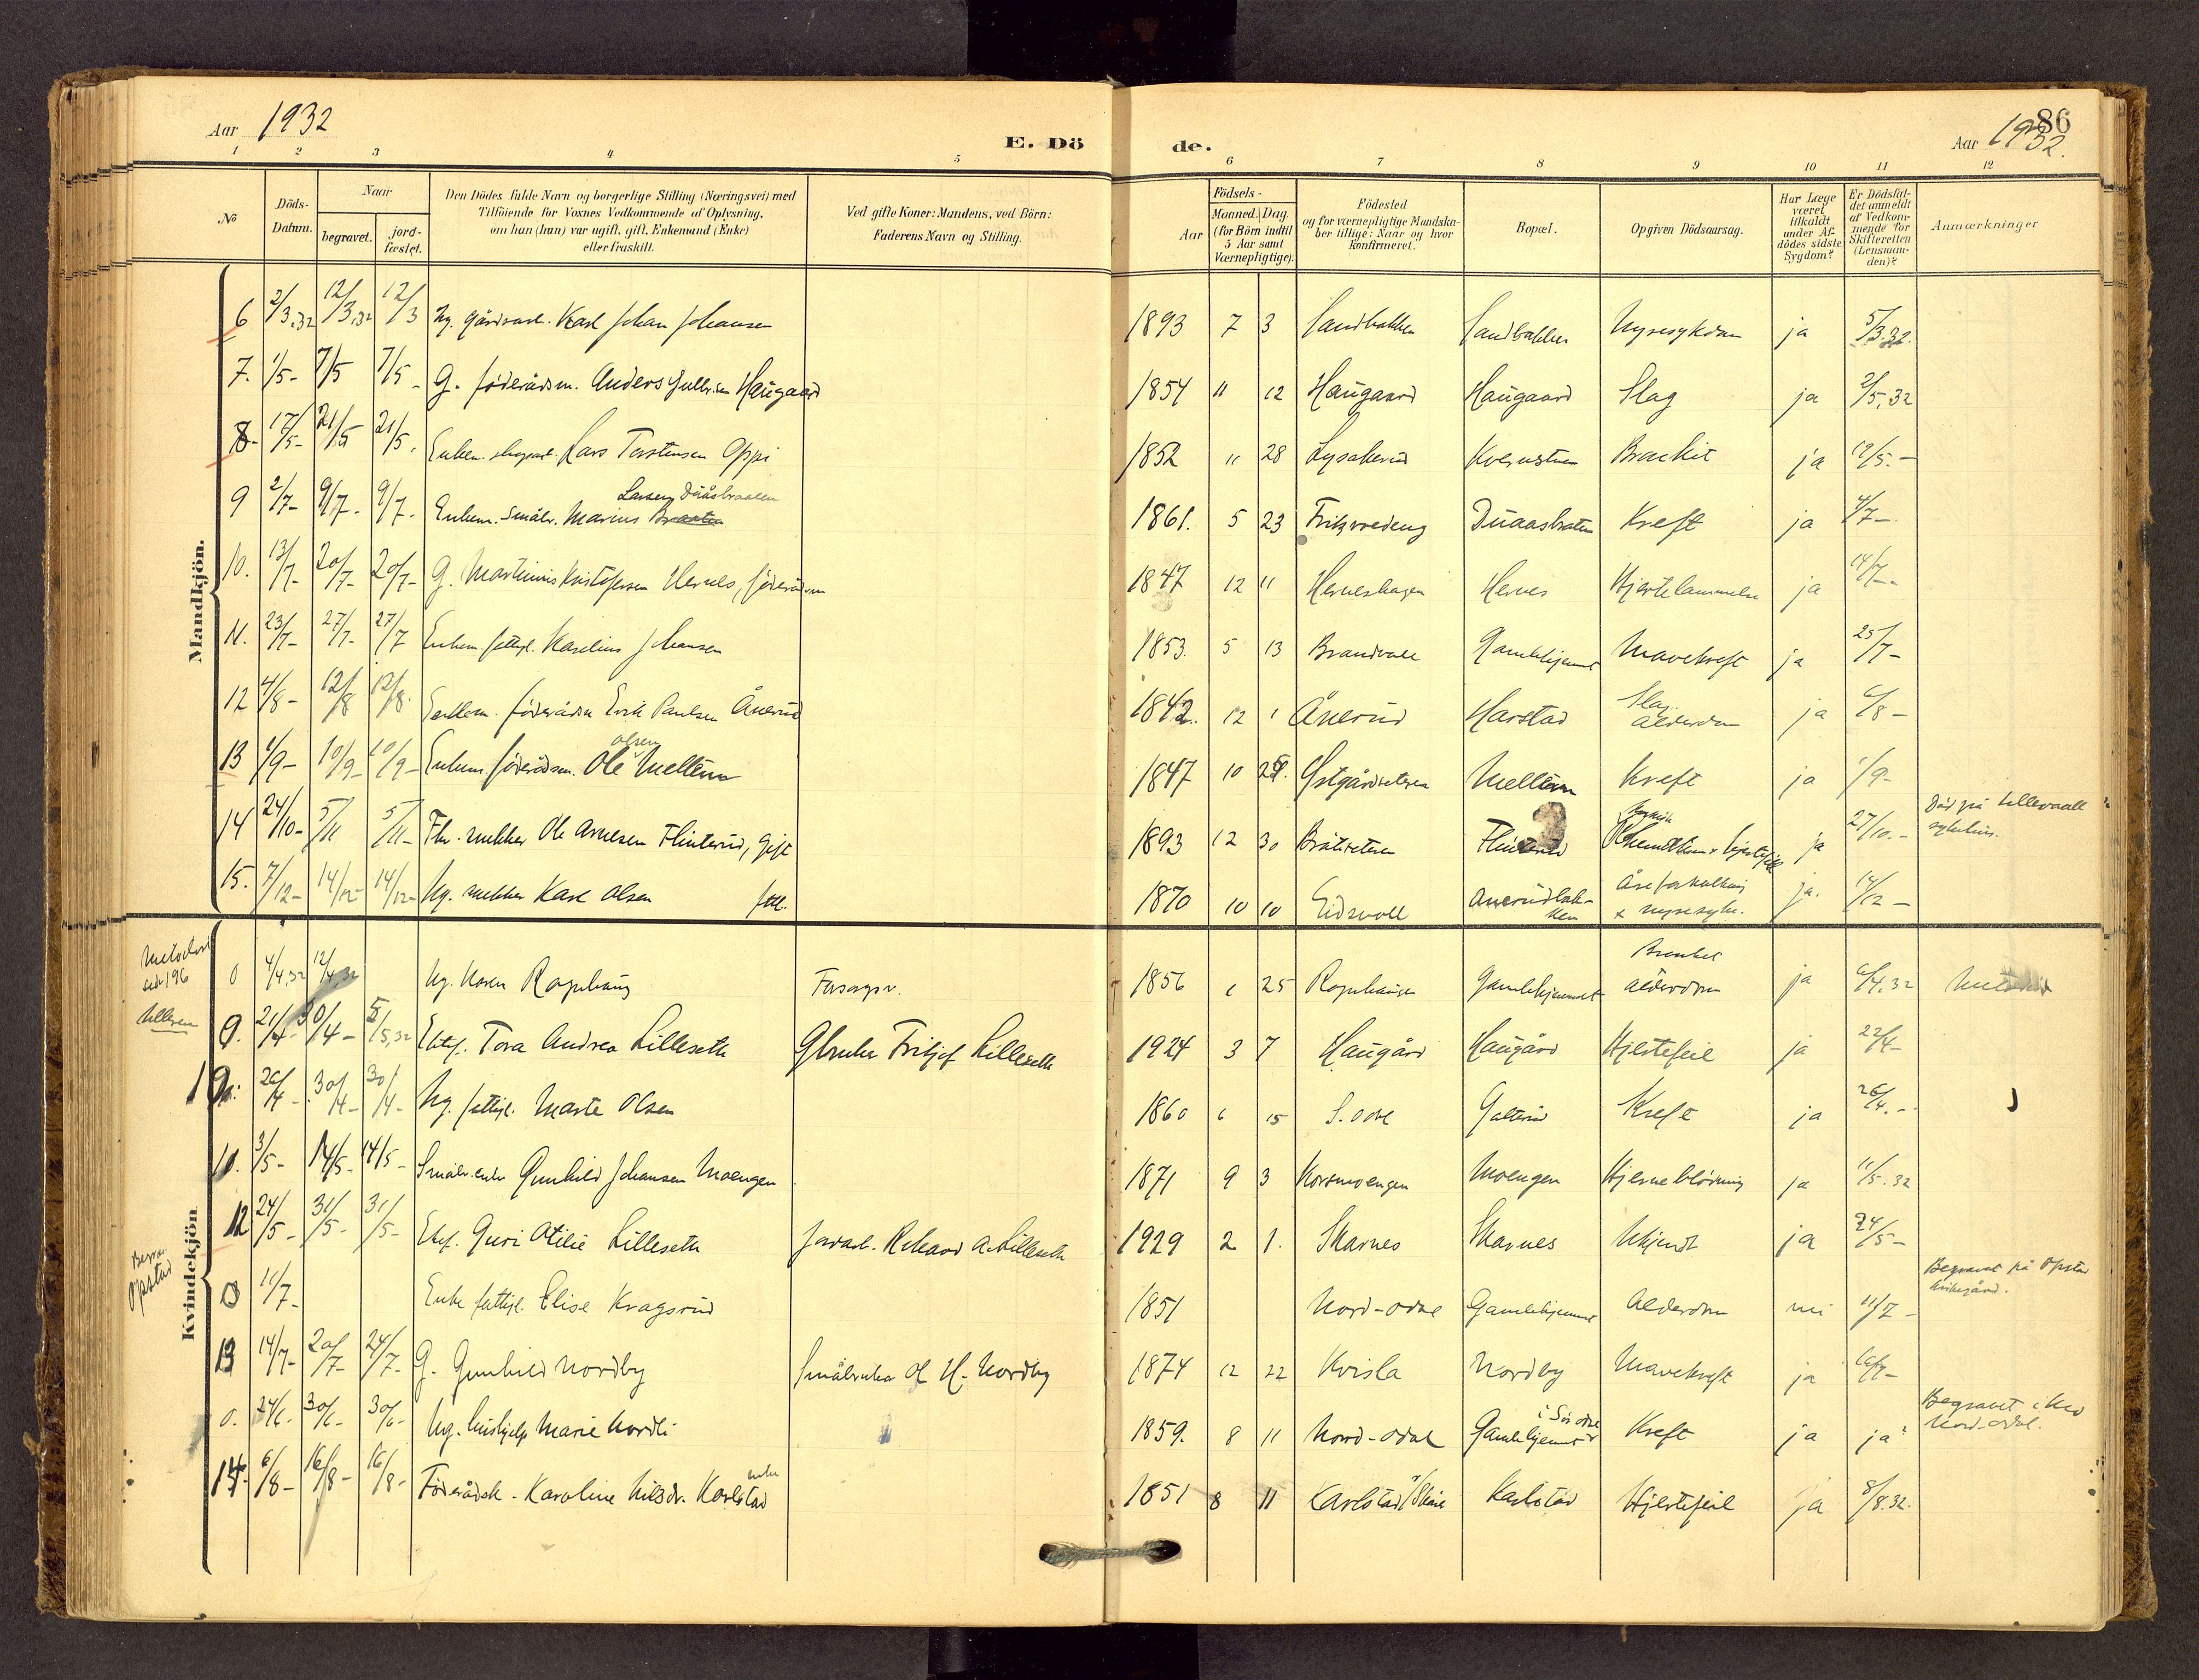 Aar 1932
E. Dö
de.
Aar 1932.
86
1 2 3 4 5 6 7 8 9 10 11 12
No
Döds-Datum.
Naar
begravet.
jord-fæstet.
Den Dödes fulde Navn og borgerlige Stilling (Næringsvei) med
Tilföiende for Voxnes Vedkommende af Oplysning,
om han (hun) var ugift, gift, Enkemand (Enke)
eller fraskilt.
Ved gifte Koner: Mandens, ved Börn:
Faderens Navn og Stilling.
Födsels-
Aar
Maaned. Dag
(for Börn indtil
5 Aar samt
Værnepligtige).
Födested
og for værnepligtige Mandska-
ber tillige: Naar og hvor
konfirmeret.
Bopæl.
Opgiven Dödsaarsag.
Har Læge
været
tilkaldt
under Af-
dödes sidste
Sygdom?
Er Dödsfal-
det anmeldt
af Vedkom-
mende for
Skifteretten
(Lensman-
den)?
Anmærkninger
Mandkjön.
6 2/3.32 12/3.32 12/3 Ug. gårdsarb. Karl Johan Johansen 1893 7 3 Sandbakken Sandbakken Nyresykdom ja 5/3.32.
7. 1/5- 7/5 7/5- G. föderådsm. Anders Gulbr.sen Haugaard 1854 11 12 Haugaard Haugaard Slag ja 2/5.32
8- 17/5- 21/5 21/5. Enkem. skogsarb. Lars Torstensen Oppi 1852 11 28 Lysakerud Kvernstuen Bronkit ja 19/5.-
Larsen Duåsbraaten
9 2/7- 9/7- 9/7- Enkem. småbr. Marius Braaten 1861. 5 23 Duaasbraten Kreft ja 4/7-
10. 13/7- 20/7- 20/7- G. Martinius Kristofersen Hernes, föderådsm 1847 12 11 Herneshagen Hernes Hjertelammelse ja 14/7-
11. 23/7- 27/7- 27/7 Enkem. fattigl. Karelius Johansen 1853. 5 13 Brandvall Gamlehjemmet Mavekreft ja 25/7-
12 4/8- 12/8 12/8. Enkem. föderådsm Erik Paulsen Ånerud 1842. 12 1 Ånerud Harstad Slag. alderdom ja 6/8-
Olsen
13 1/9- 10/9- 10/9- Enkem. föderådsm. Ole Mellem 1847 10 Mellem Kreft ja 1/9-
14 24/10- 5/11 5/11- Fhv. snekker Ole Arnesen Flinterud, gift 1893 12 30 Bråtereteren Flinterud ja 27/10.- Död på Ullevaall sykehus.
15. 7/12- 14/12- 14/12- Ug. snekker Karl Olsen fatt. 1870 10 10 Eidsvoll Anerudbakken Åreforkalkning & nyresyke. ja. 14/12-
Kvindekjön
side 196
0 4/4.32 12/4.32 Ug. Karen Ropehaug Forsorgsv. 1856 1 25 Ropehaugen Gamlehjemmet alderdom ja 6/4.32
9. 21/4- 30/4- 5/5.32 Ektef. Tora Andrea Lilleseth Gbruker Fritjof Lilleseth 1924 3 7 Haugård Haugård Hjertefeil ja 22/4-
10. 26/4- 30/4- 30/4- Ug. fattigl. Marte Olsen 1860 6 15 S. Odal Galterud Kreft ja 26/4.-
11. 3/5- 14/5- 14/5- Småbr.enke Gunhild Johansen Moengen 1871 9 3 Korsmoengen Moengen Hjerneblödning ja 11/5.32
12 24/5- 31/5- 31/5- Ektef. Guri Otilie Lilleseth Jordarb. Rikard A. Lilleseth 1929 2 1. Skarnes Skarnes Ukjendt ja 24/5-
Begra. Opstad
0 11/7- Enke fattigl. Elise Kragsrud 1851 Nord-Odal Gamlehjemmet Alderdom nei 11/7- Begravet på Opstad kirkegård.
13 14/7- 20/7- 24/7- G. Gunhild Nordby Småbruker H. Nordby 1874 12 22 Kvisla Nordby Mavekreft ja
0. 24/6. 30/6- 30/6- Ug. hushjelp Marie Nordli 1859. 8 11 Nord-Odal Gamlehjemmet i Sör Odal Kreft ja ja Begravet i Nord-Odal.
14. 6/8- 16/8- 16/8- Föderådsk. enke Karoline Nilsdr. Karlstad 1851 8 11 Karlstad Karlstad Hjertefeil ja 8/8.32.